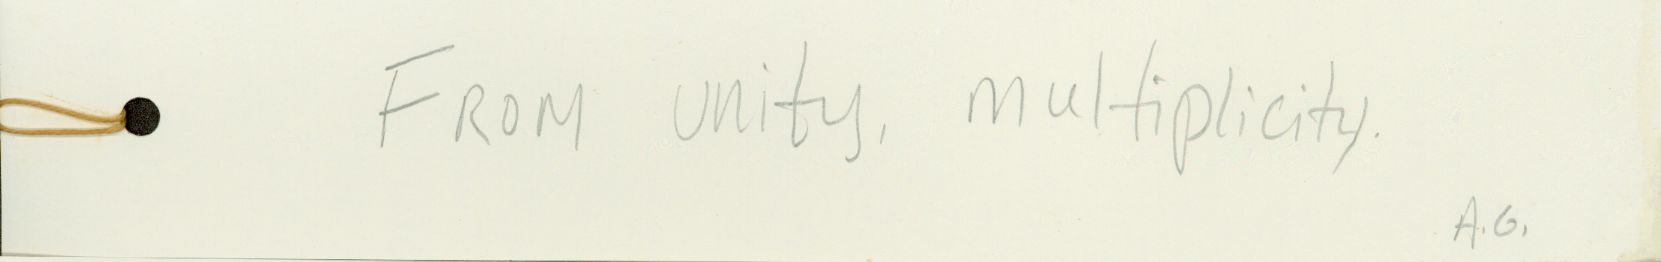 FROM unity, multiplicity.
A.G.